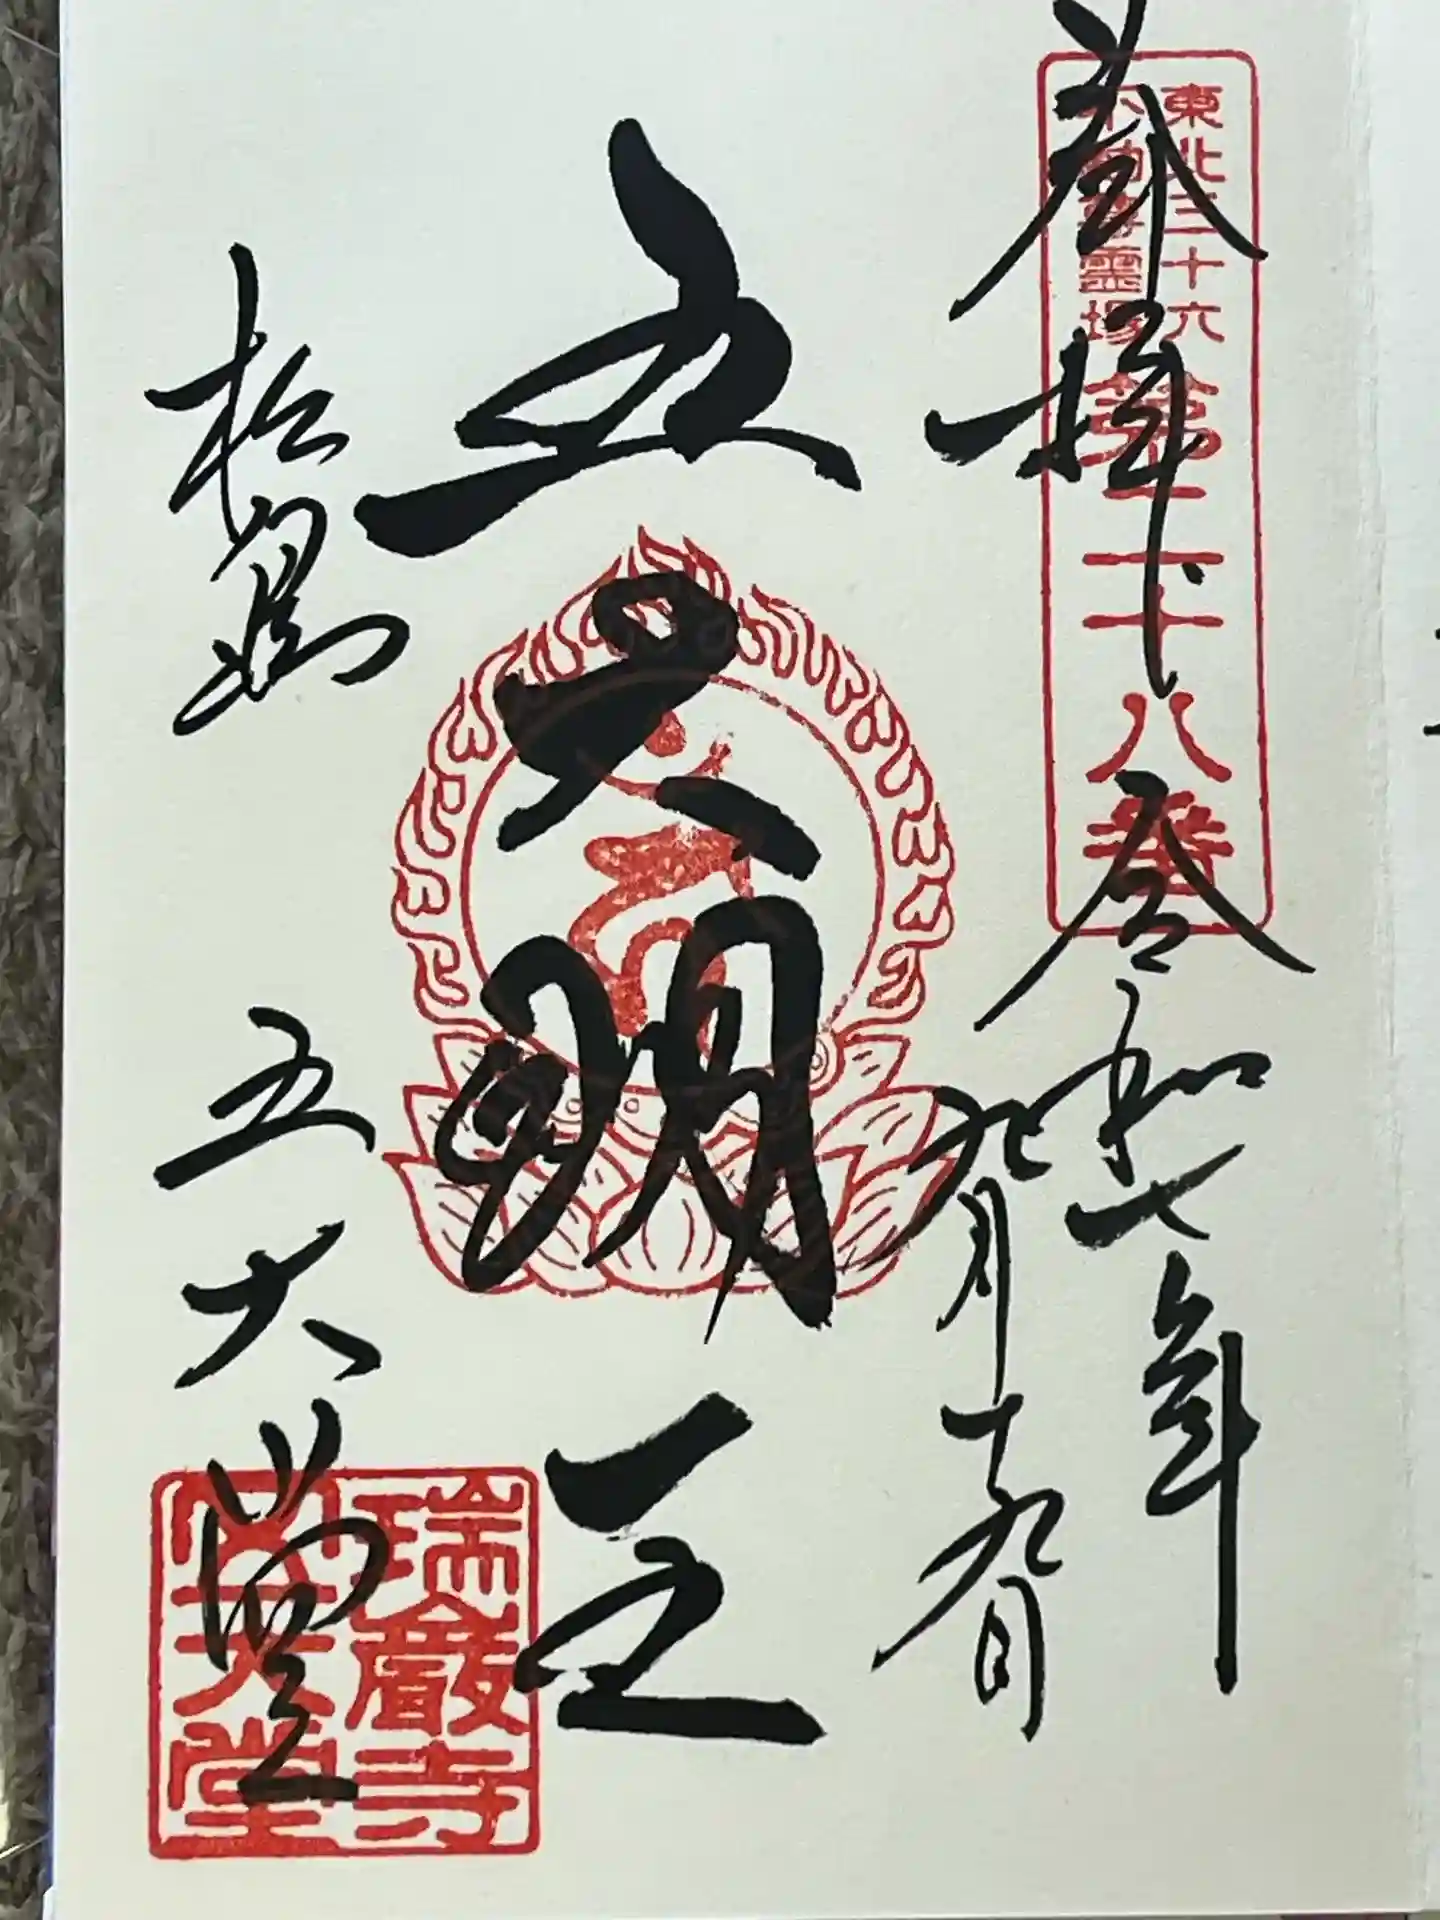 奉拝
令和七年
九月十九日
東北三十六
不動尊霊場
第二十八番
五大明王
松島
五大堂
瑞巖寺
五大堂